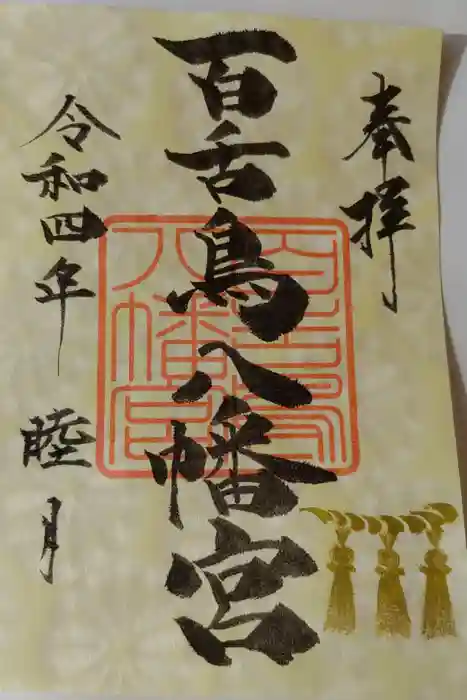 奉拝
百舌鳥八幡宮
令和四年 睦月
百舌鳥
八幡宮